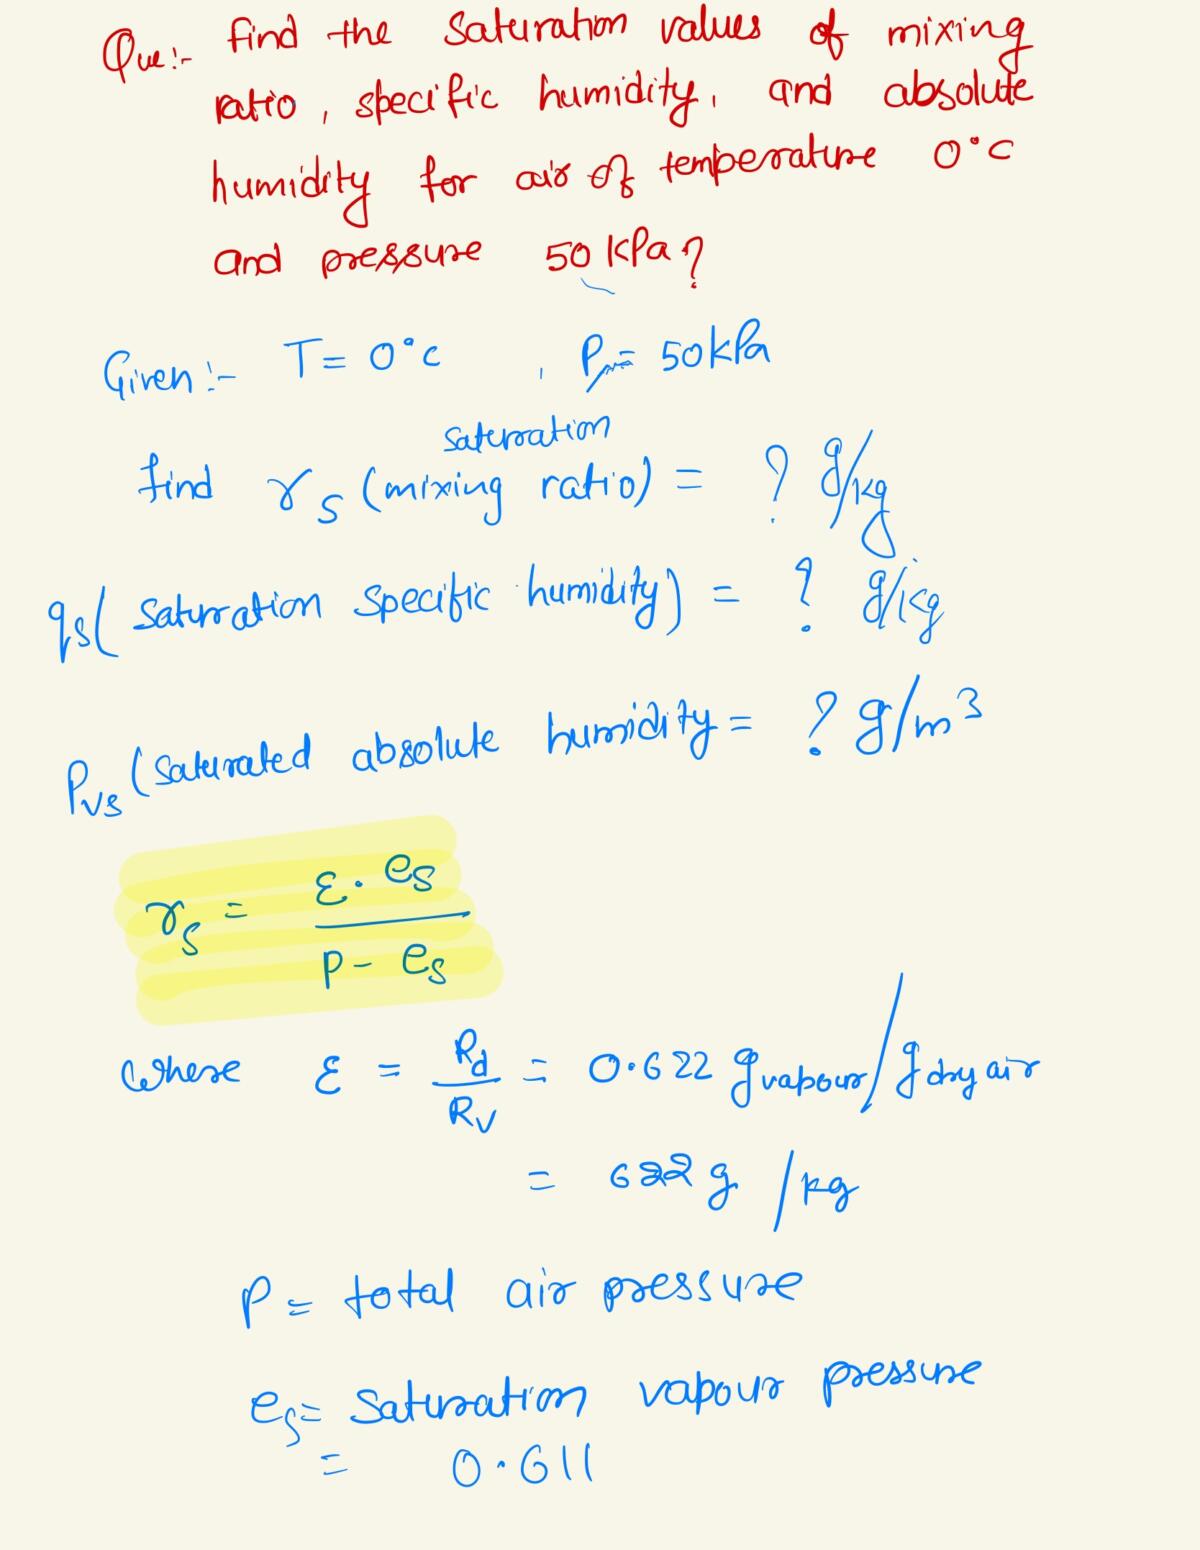 Que:- find the saturation values of mixing
ratio, specific humidity, and absolute
humidity for air of temperature 0°C
and pressure 50 kPa?
Given:- T= 0°C , P = 50kPa
saturation
find rs (mixing ratio) = ? g/kg
qs( saturation specific humidity) = ? g/kg
Pvs (saturated absolute humidity = ? g/m³
rs = ε. es / P - es
where ε = Rd/Rv = 0.622 g vapour/g dry air
= 622g /kg
P = total air pressure
es= saturation vapour pressure
= 0.611